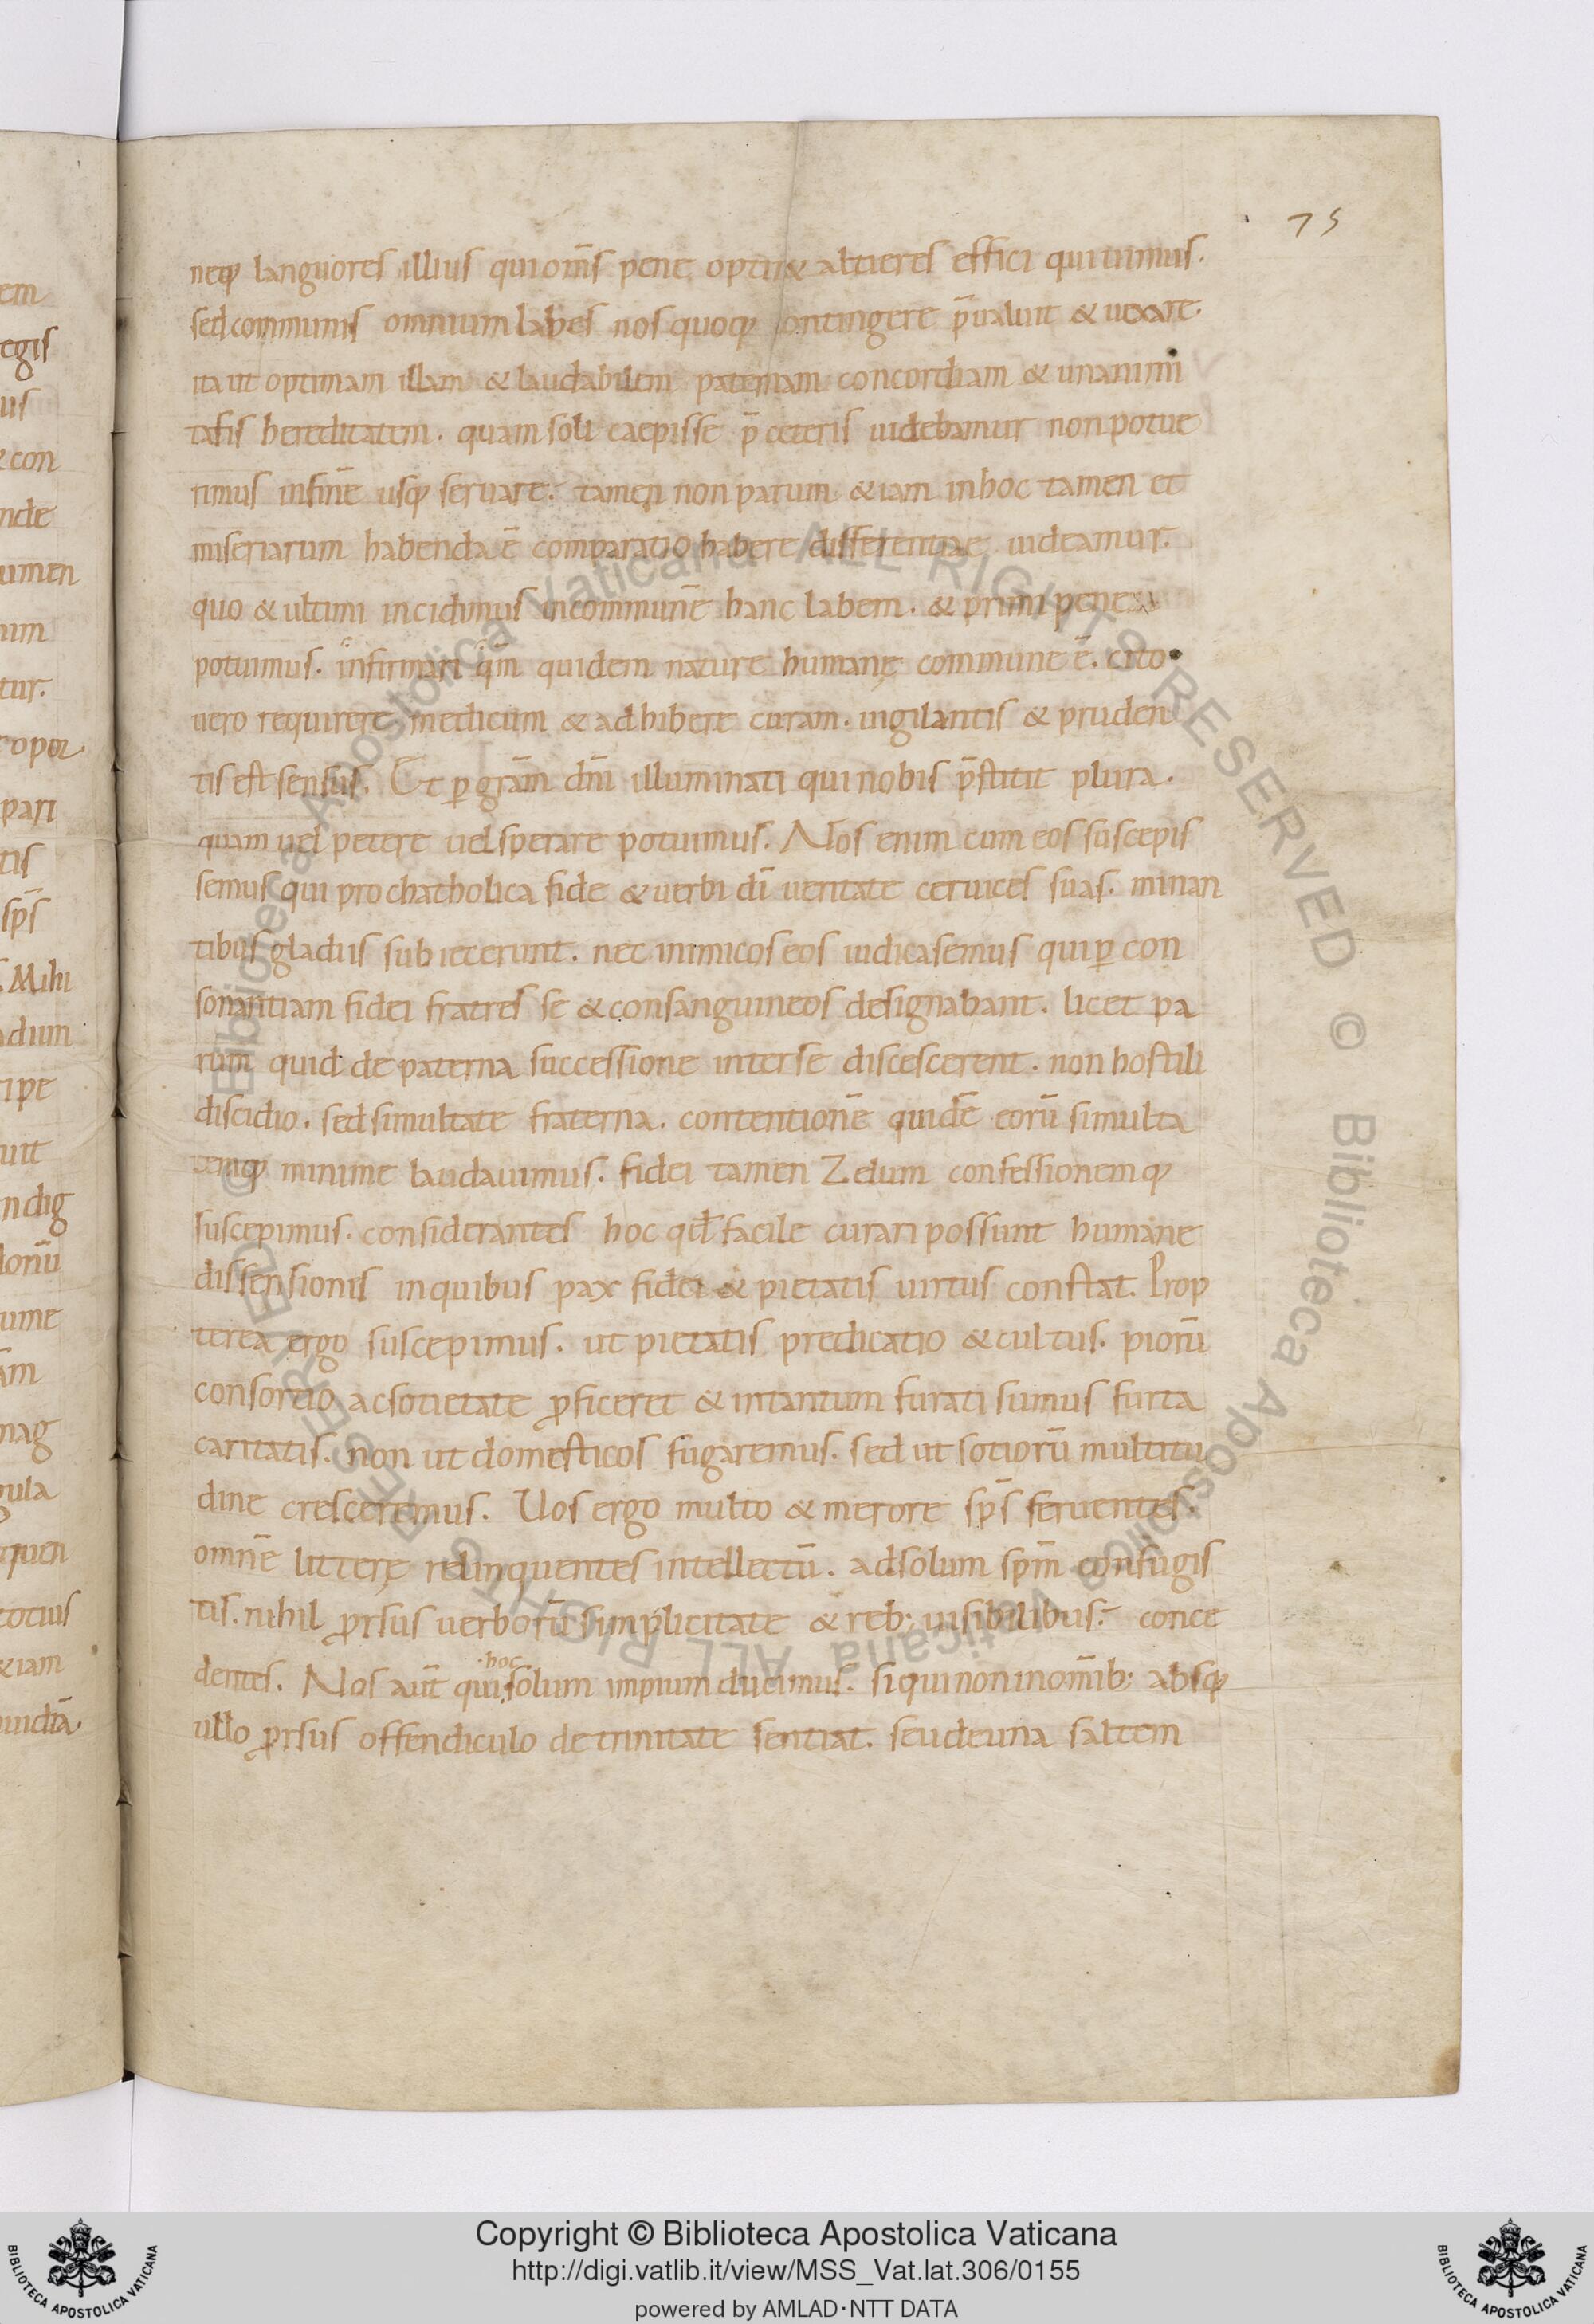 75
neq; languores illius qui om̅s pene optin& altieres effici quiuimus.
sed communis omnium labes nos quoq; contingere p̅ualuit & uexare.
ita ut optimam illam & laudabilem paternam concordiam & unanimi
tatis hereditatem. quam soli caepisse p̅ ceteris uidebamur non potue
rimus in fine̅ usq; seruare. tamen non parum &iam in hoc tamen et
miseriarum habenda e̅ comparatio habere differentiae uideamur.
quo & ultimi incidimus in commune̅ hanc labem. & primi pene
potuimus. infirmari qm̅ quidem nature humanę commune e̅. cito
uero requirere medicum & adhibere curam. uigilantis & pruden
tis est sensus. Et ꝑ gra̅m dn̅i illuminati qui nobis p̅stitit plura.
quam uel petere uel sperare potuimus. Nos enim cum eos suscepis
semus qui pro chatholica fide & uerbi di̅ ueritate ceruices suas. minan
tibus gladiis subiecerunt. nec inimicos eos iudicasemus qui ꝑ con
sonantiam fidei fratres se & consanguineos designabant. licet pa
rum quid de paterna successione inter se discescerent. non hostili
discidio. sed simultate fraterna. contentione̅ quide̅ eoru̅ simulta
temq; minime laudauimus. fidei tamen Zelum confessionemq;
suscepimus. considerantes hoc qđ facile curari possunt humane
dissensionis in quibus pax fidei & pietatis uirtus constat. Prop
terea ergo suscepimus. ut pietatis predicatio & cultus. pioru̅
consortio ac sotietate ꝓficeret & in tantum furati sumus furta
caritatis. non ut domesticos fugaremus. sed ut sotioru̅ multitu
dine cresceremus. Uos ergo multo & merore sp̅s feruentes.
omne̅ litterę relinquentes intellectu̅. ad solum spm̅ confugis
tis. nihil ꝓrsus uerboru̅ simplicitate & reb; uisibilibus. conce
dentes. Nos aut̅ qui hoc solum impium ducimus. si qui non in om̅ib; absq;
ullo ꝓrsus offendiculo de trinitate sentiat. seu de una saltem
em
egis
us
& con
nde
umen
um
tur.
pari
tis
sp̅s
Mihi
adum
ipe
uit
ndig
ume
mag
gula
quen
totius
&iam
© Biblioteca Apostolica Vaticana ALL RIGHTS RESERVED © Biblioteca Apostolica Vaticana ALL RIGHTS RESERVED
Copyright © Biblioteca Apostolica Vaticana
http://digi.vatlib.it/view/MSS_Vat.lat.306/0155
powered by AMLAD·NTT DATA
BIBLIOTECA APOSTOLICA VATICANA
BIBLIOTECA APOSTOLICA VATICANA